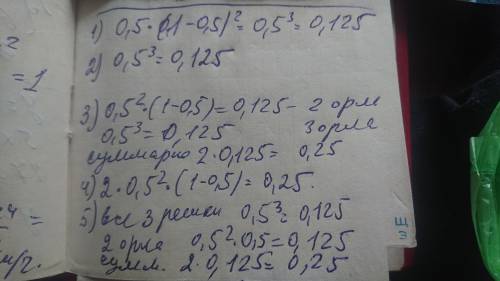 1) 0,5·(1-0,5)²=0,5³=0,125
2) 0,5³=0,125
3) 0,5²·(1-0,5)=0,125- 2 орл
0,5³= 0,125 3 орла
суммарно 2·0,125= 0,25
4) 2·0,5²·(1-0,5)=0,25.
5) все 3 решки 0,5³=0,125
2 орла 0,5²·0,5=0,125
сумм. 2·0,125=0,25
2
=1
=
м/г.